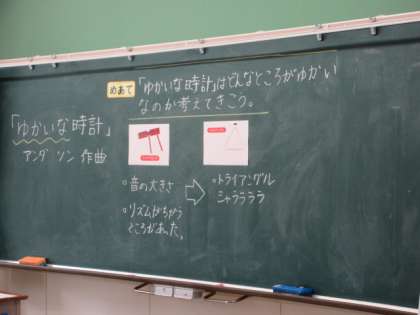 めあて
「ゆかいな時計」はどんなところがゆかい
なのか考えてきこう。
「ゆかいな時計」
アンダソン 作曲
◦音の大きさ
◦リズムがちがう
ところがあった。
◦トライアングル
シャララララ